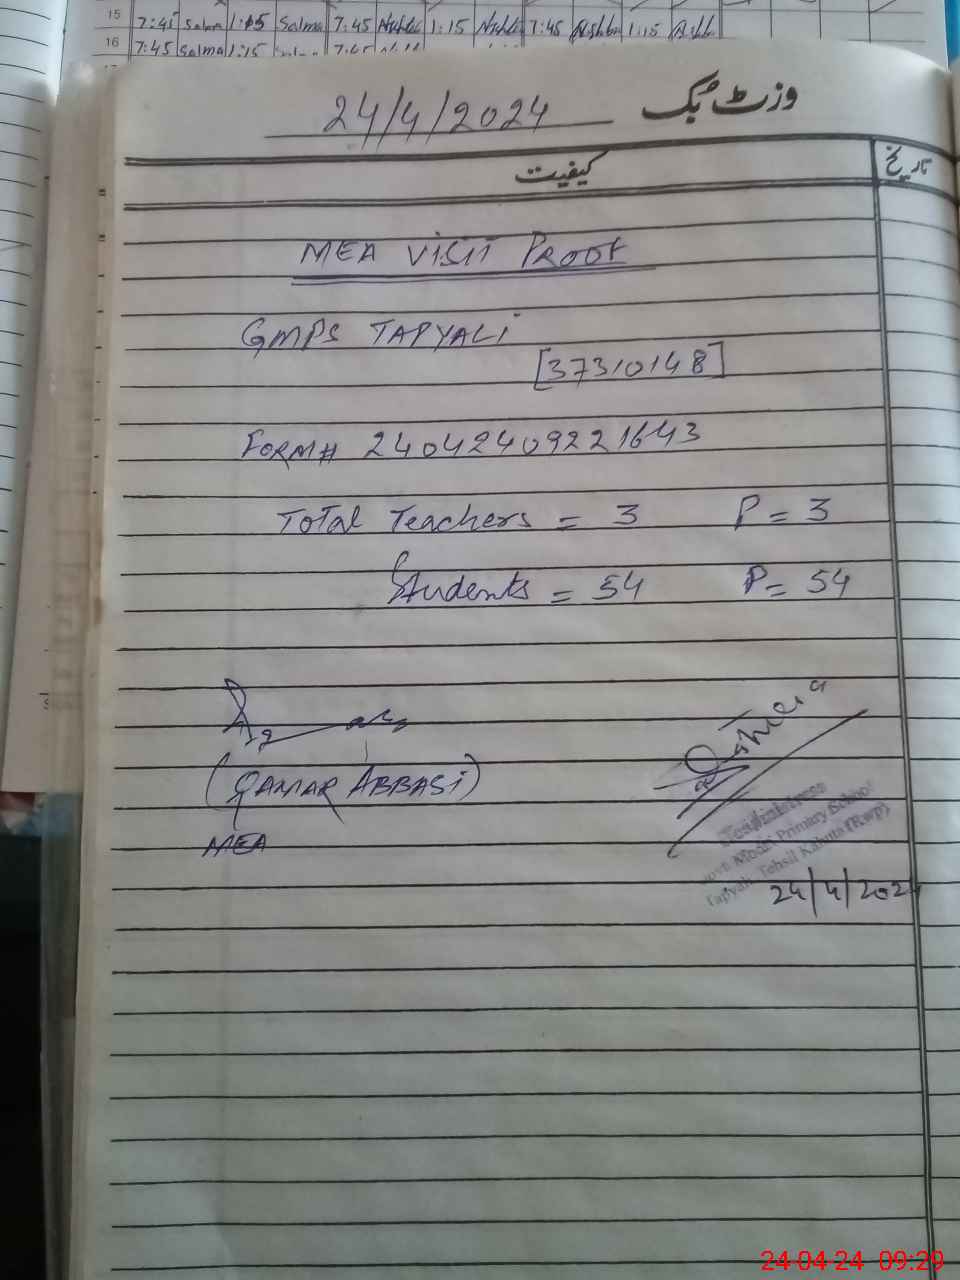 15 7:45 Salma 1:15 Salma 7:45 1:15 1:45 1:15
16 7:45 Salma 1:15 7:45
وزٹ بُک
24/4/2024
کیفیت
تاریخ
MEA VISIT PROOF
GMPS TAPYALI
[37310148]
FORM# 24042409221643
Total Teachers = 3 P = 3
Students = 54 P = 54
(QAMAR ABBASI)
MEA
Headmistress
Govt. Model Primary School
Tapyali Tehsil Kahuta (Rwp)
24/4/2024
24-04-24 09:29